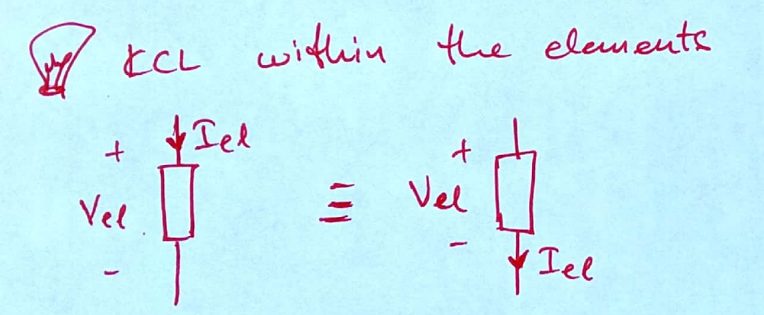 KCL within the elements
+ Iel ≡ + 
Vel Vel
- - Iel